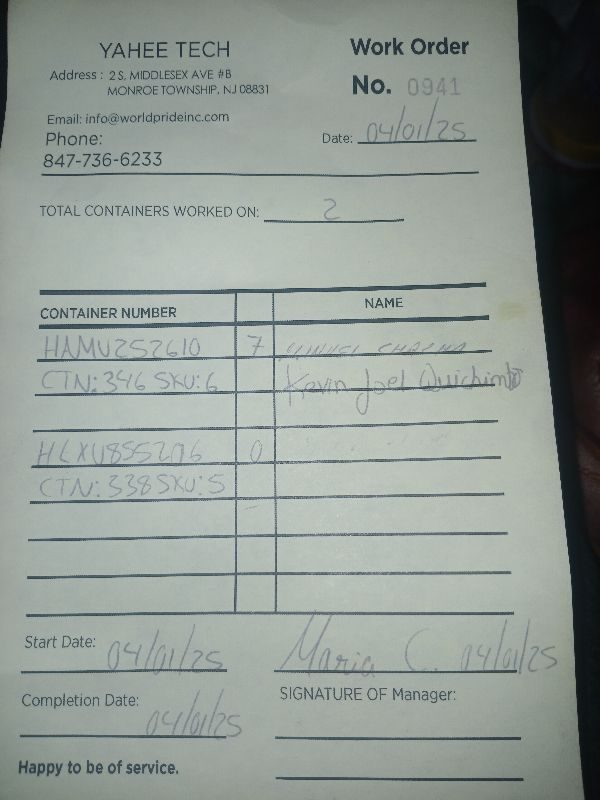 YAHEE TECH
Work Order
Address : 2 S. MIDDLESEX AVE #B
MONROE TOWNSHIP, NJ 08831
No. 0941
Email: info@worldprideinc.com
Phone:
847-736-6233
Date: 04/01/25
TOTAL CONTAINERS WORKED ON: 2
CONTAINER NUMBER NAME
HAMU252610 7
CTN: 346 SKU: 6 Kevin Joel
HLXU855206 0
CTN: 338 SKU: 5
Start Date: 04/01/25
Maria C. 04/01/25
Completion Date: 04/01/25
SIGNATURE OF Manager:
Happy to be of service.